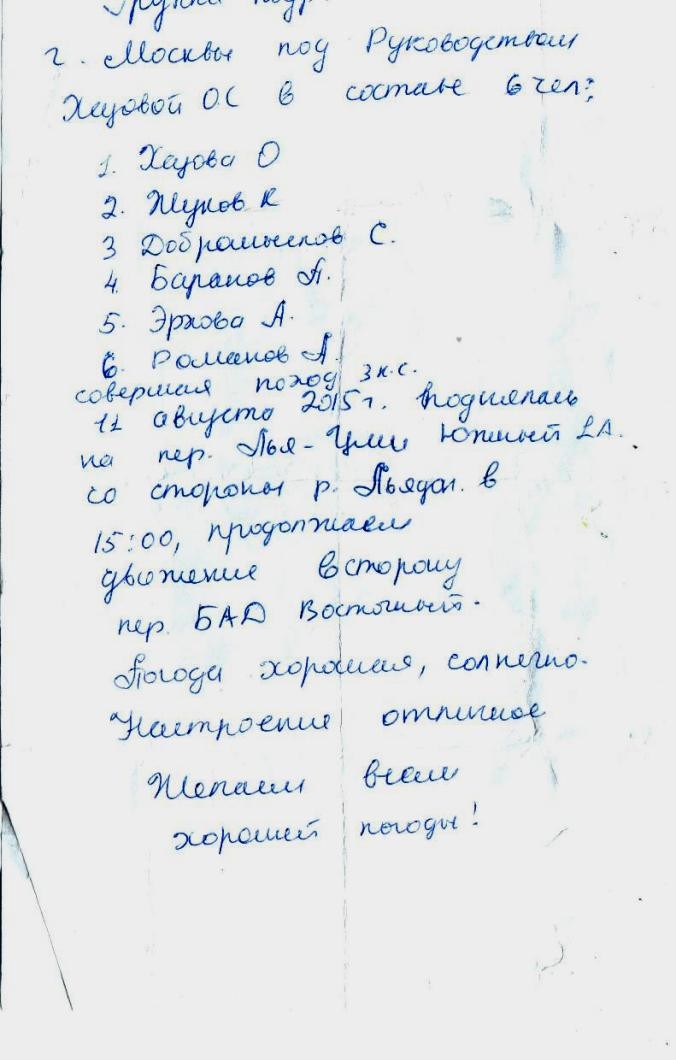 Группа
г. Москвы под Руководством
Хецовой ОС в составе 6 чел:
1. Хецова О
2. Жуков К
3 Добромыслов С.
4. Баранов П.
5. Эрхова А.
6. Романов А.
совершая поход 3 к.с.
11 августа 2015 г. поднялась
на пер. Лья-Цми Южный 1А.
со стороны р. Льядон. в
15:00, продолжаем
движение в сторону
пер. БАД Восточный.
Погода хорошая, солнечно.
Настроение отличное
Желаем всем
хорошей погоды!